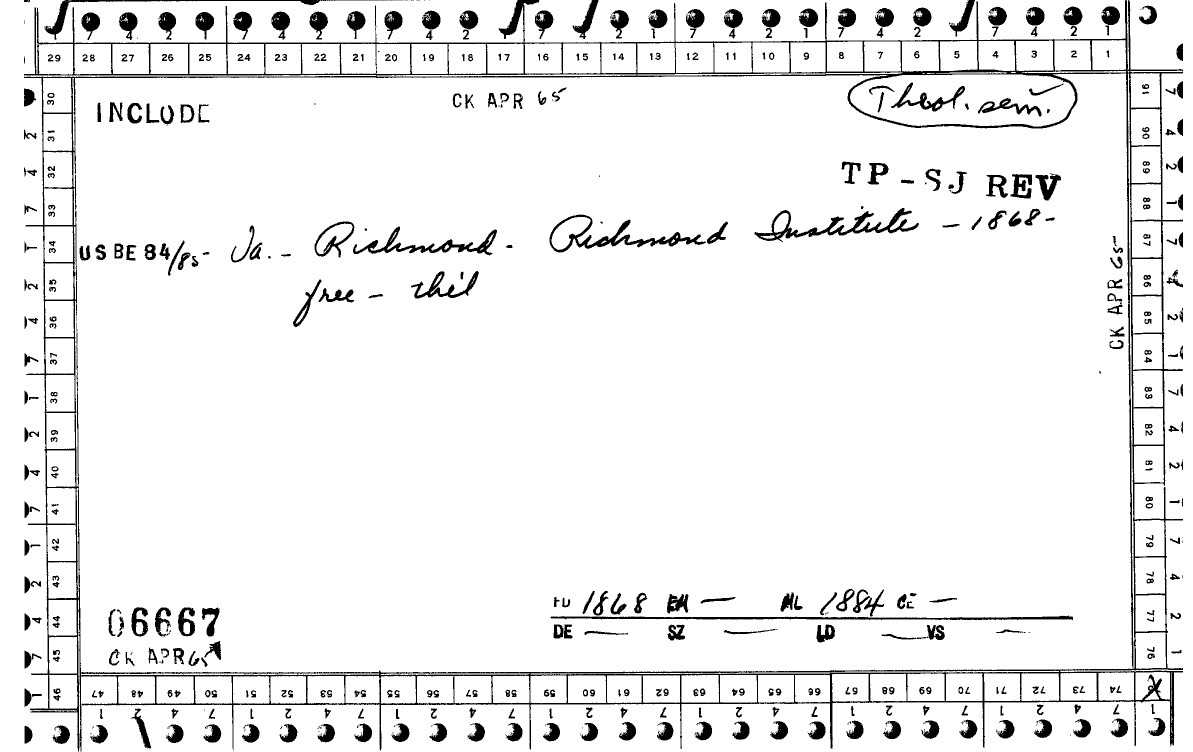 7 4 2 1 7 4 2 1 7 4 2 1 7 4 2 1 7 4 2 1 7 4 2 1 7 4 2 1
29 28 27 26 25 24 23 22 21 20 19 18 17 16 15 14 13 12 11 10 9 8 7 6 5 4 3 2 1
INCLUDE
CK APR 65
Theol. sem.
TP-SJ REV
US BE 84/85- Va. - Richmond - Richmond Institute - 1868-
free - th'l
CK APR 65
06667
CK APR 65
FD 1868 EM — ML 1884 CE —
DE — SZ — LD — VS —
30 31 32 33 34 35 36 37 38 39 40 41 42 43 44 45 46
2 4 7 1 2 4 7 1 2 4 7 1 2 4 7 1
91 90 89 88 87 86 85 84 83 82 81 80 79 78 77 76
7 4 2 1 7 4 2 1 7 4 2 1 7 4 2 1
47 48 49 50 51 52 53 54 55 56 57 58 59 60 61 62 63 64 65 66 67 68 69 70 71 72 73 74
1 2 4 7 1 2 4 7 1 2 4 7 1 2 4 7 1 2 4 7 1 2 4 7 1 2 4 7 1